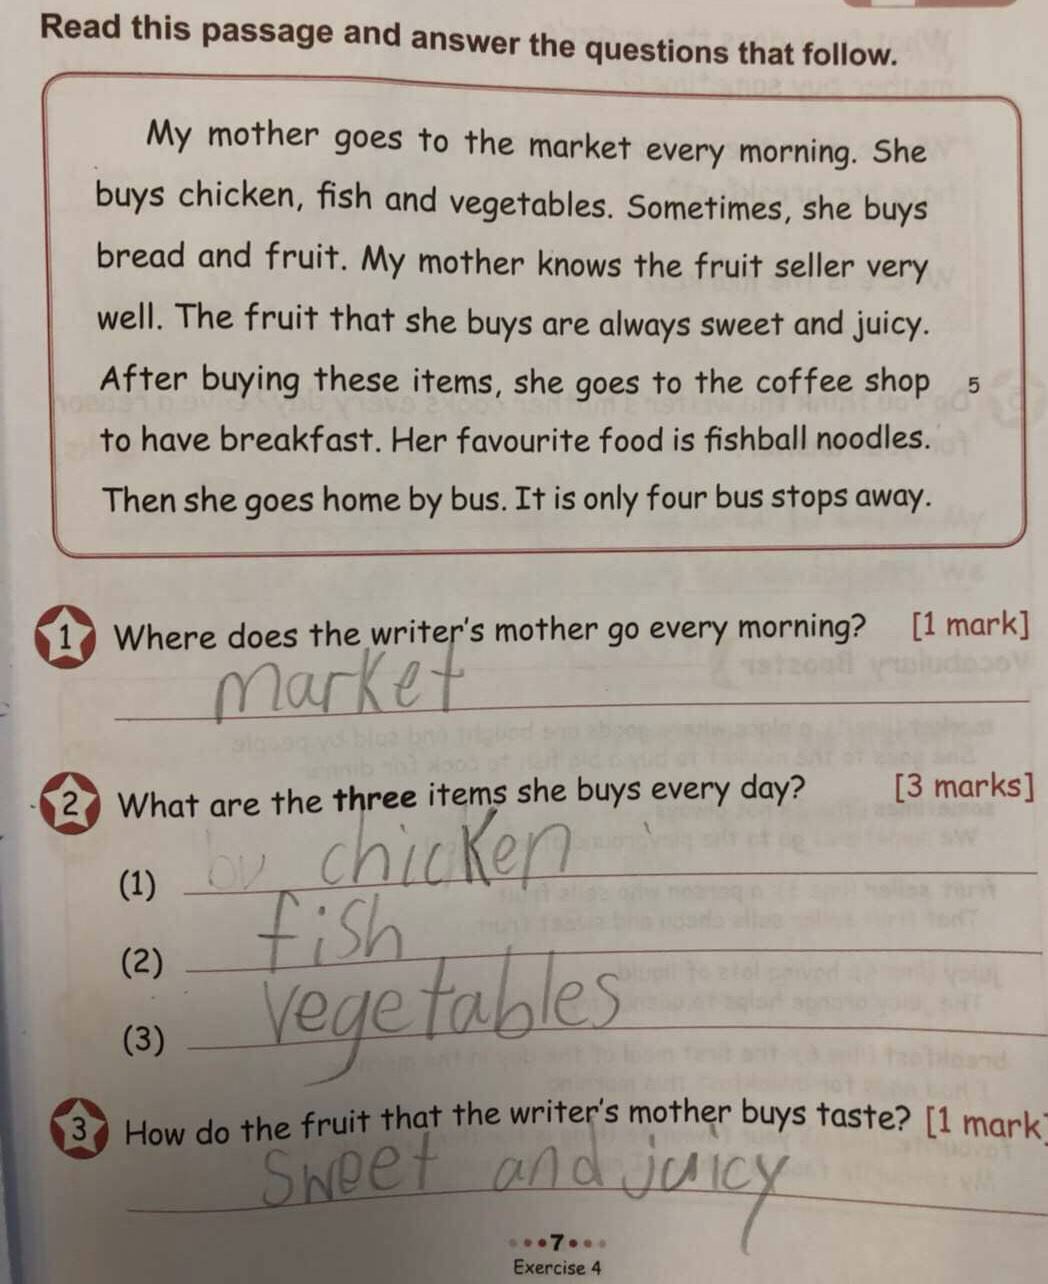 Read this passage and answer the questions that follow.
My mother goes to the market every morning. She
buys chicken, fish and vegetables. Sometimes, she buys
bread and fruit. My mother knows the fruit seller very
well. The fruit that she buys are always sweet and juicy.
After buying these items, she goes to the coffee shop 5
to have breakfast. Her favourite food is fishball noodles.
Then she goes home by bus. It is only four bus stops away.
1 Where does the writer's mother go every morning? [1 mark]
market
2 What are the three items she buys every day? [3 marks]
(1) chicken
(2) fish
(3) vegetables
3 How do the fruit that the writer's mother buys taste? [1 mark]
Sweet and juicy
7
Exercise 4